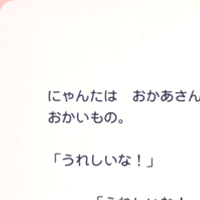 にゃんたは　おかあさん
おかいもの。
「うれしいな！」